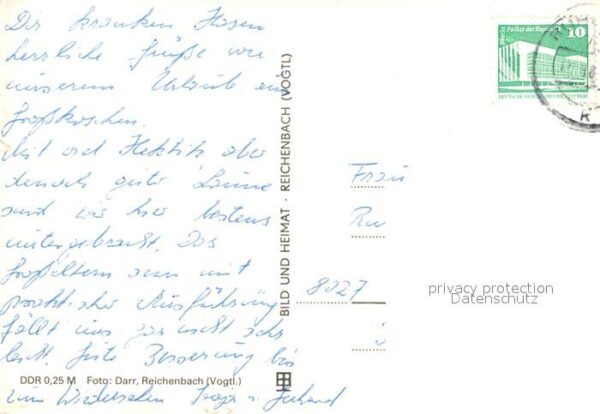 Der kranken Hasen
herzliche Grüße von
unserem Urlaub aus
Großkoschen.
Mit viel Hektik aber
dennoch guter Laune
sind wir hier bestens
untergebracht. Das
Großeltern sein mit
praktischer Ausführung
fällt uns gar nicht sehr
leicht. Gute Besserung bis
zum Wiedersehen Gerhard
DDR 0,25 M Foto: Darr, Reichenbach (Vogtl.)
BILD UND HEIMAT · REICHENBACH (VOGTL)
Berlin Palast der Republik 10
DEUTSCHE DEMOKRATISCHE REPUBLIK
Frau
8027
privacy protection
Datenschutz